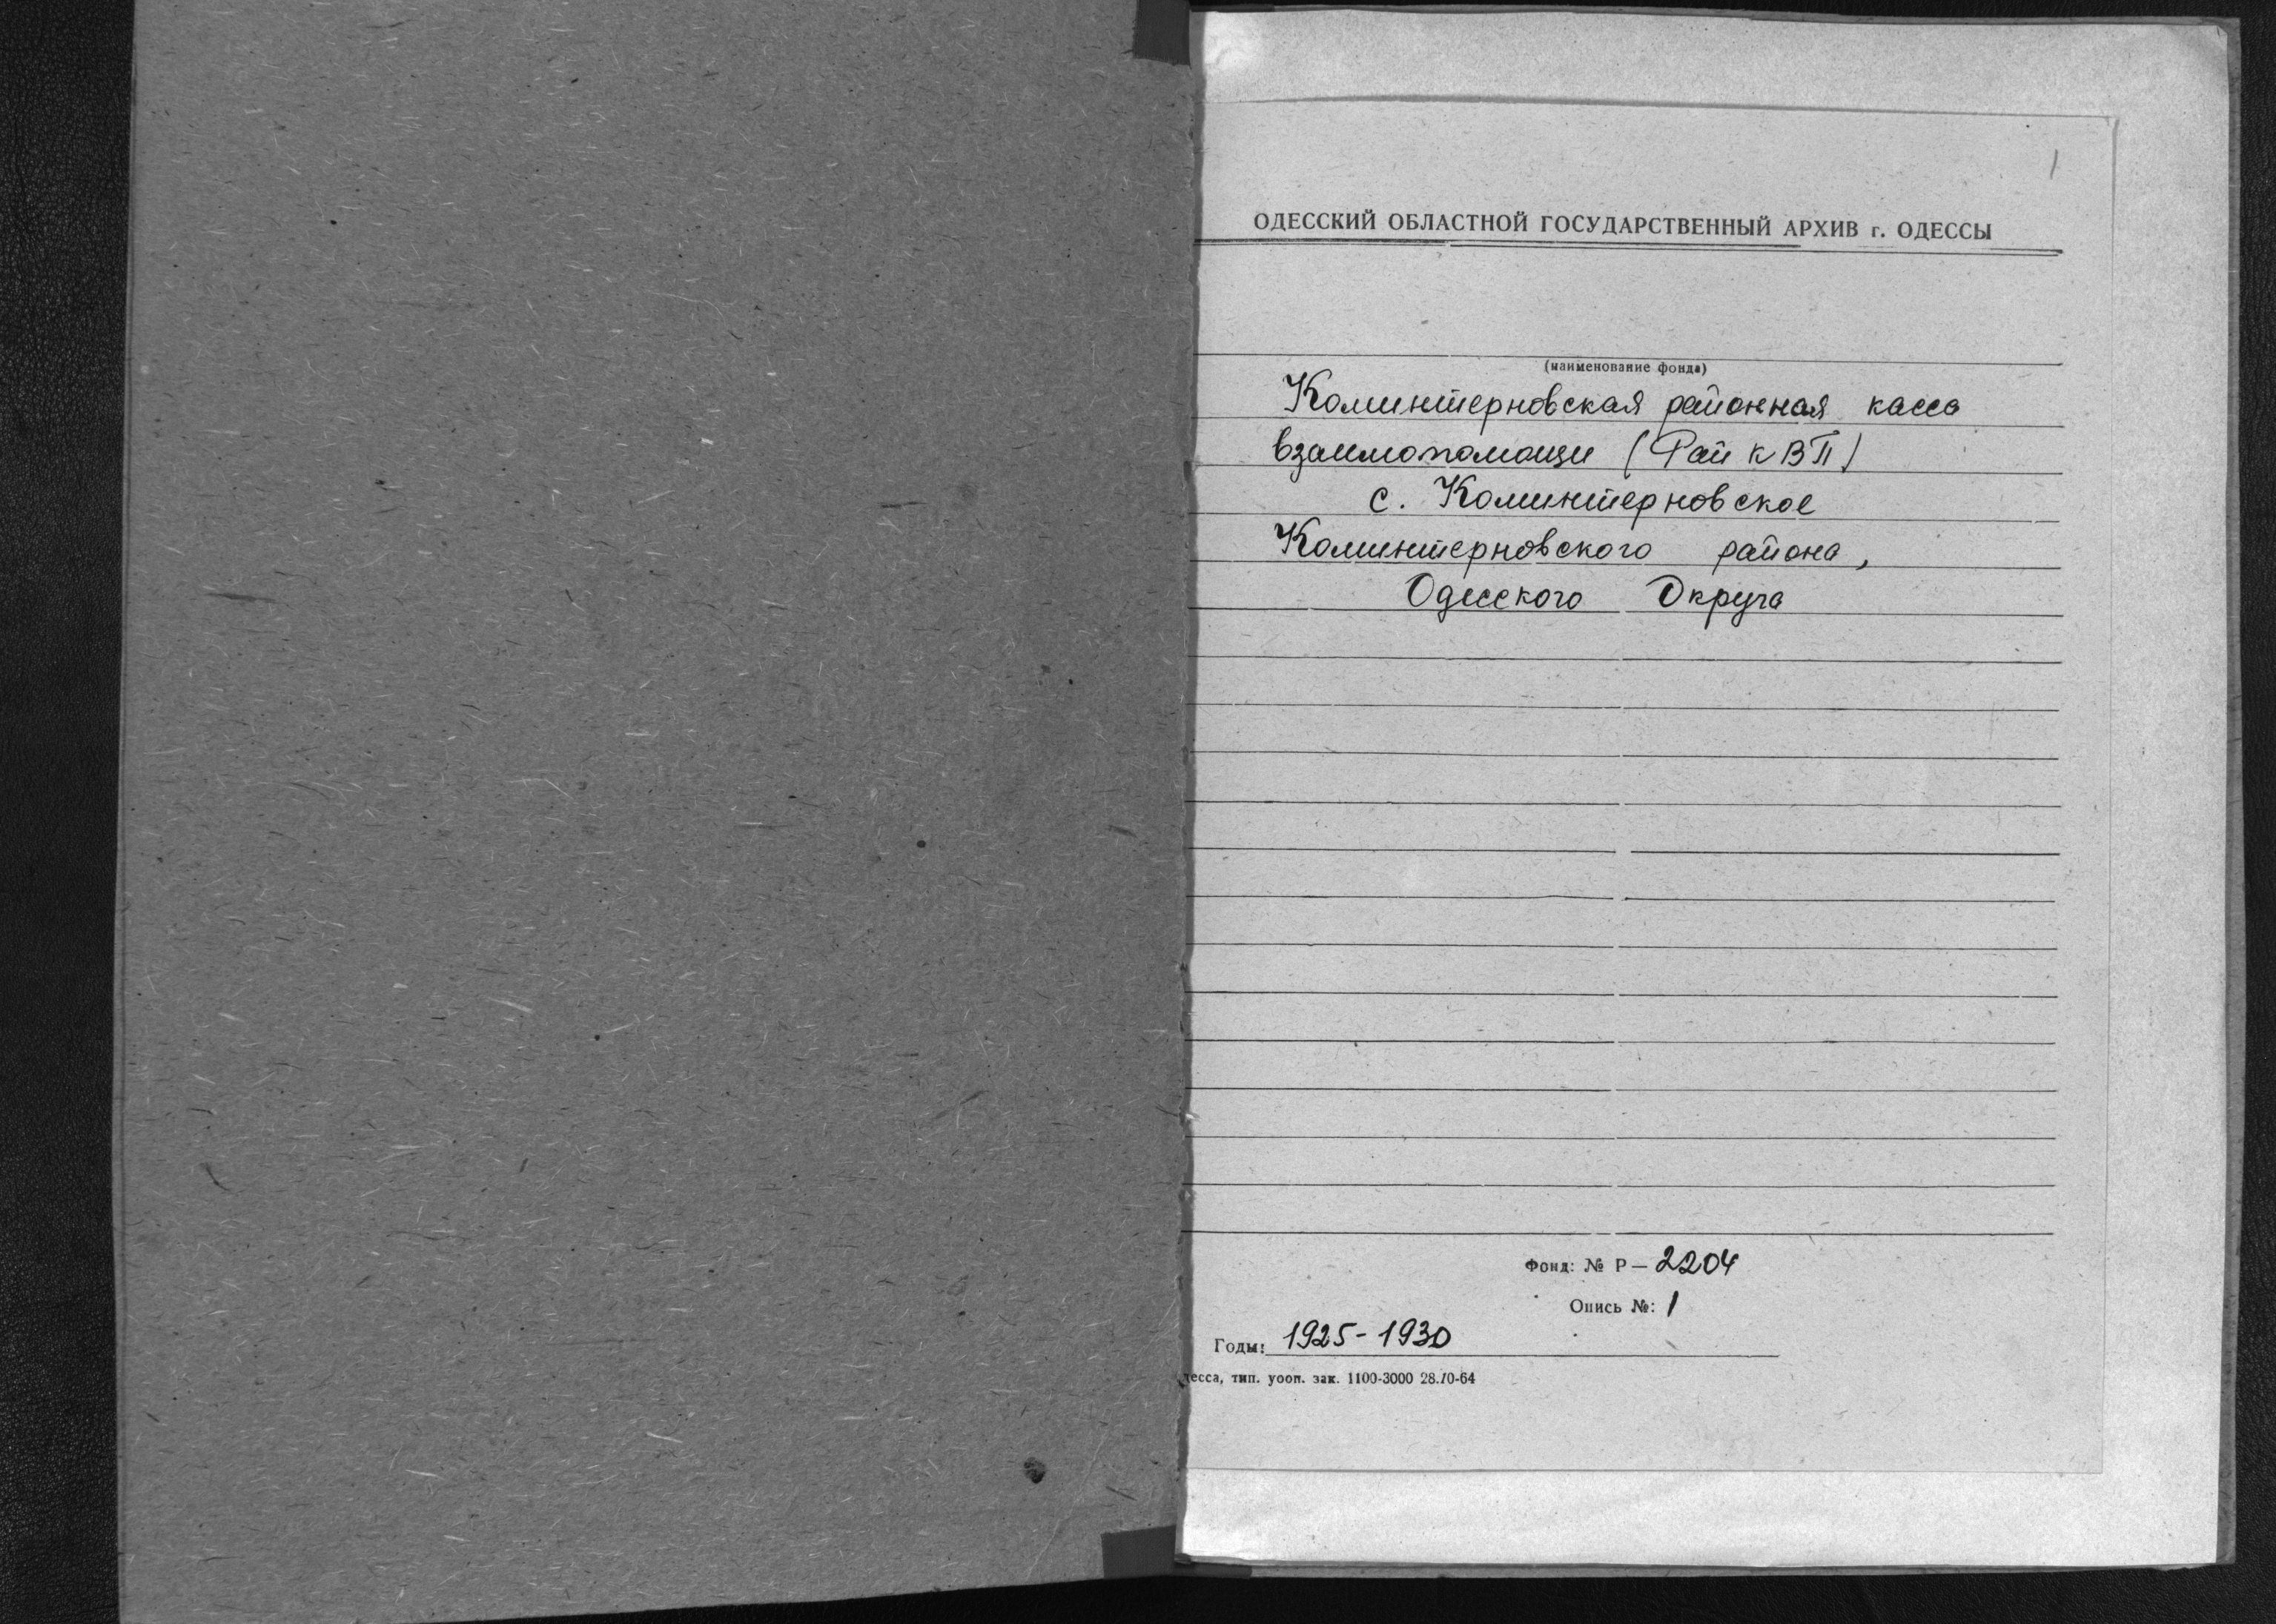 1
ОДЕССКИЙ ОБЛАСТНОЙ ГОСУДАРСТВЕННЫЙ АРХИВ г. ОДЕССЫ
(наименование фонда)
Коминтерновская районная касса
взаимопомощи (Рай к ВП)
с. Коминтерновское
Коминтерновского района,
Одесского Округа
Фонд: № Р— 2204
Опись №: 1
Годы: 1925-1930
десса, тип. уооп. зак. 1100-3000 28.10-64